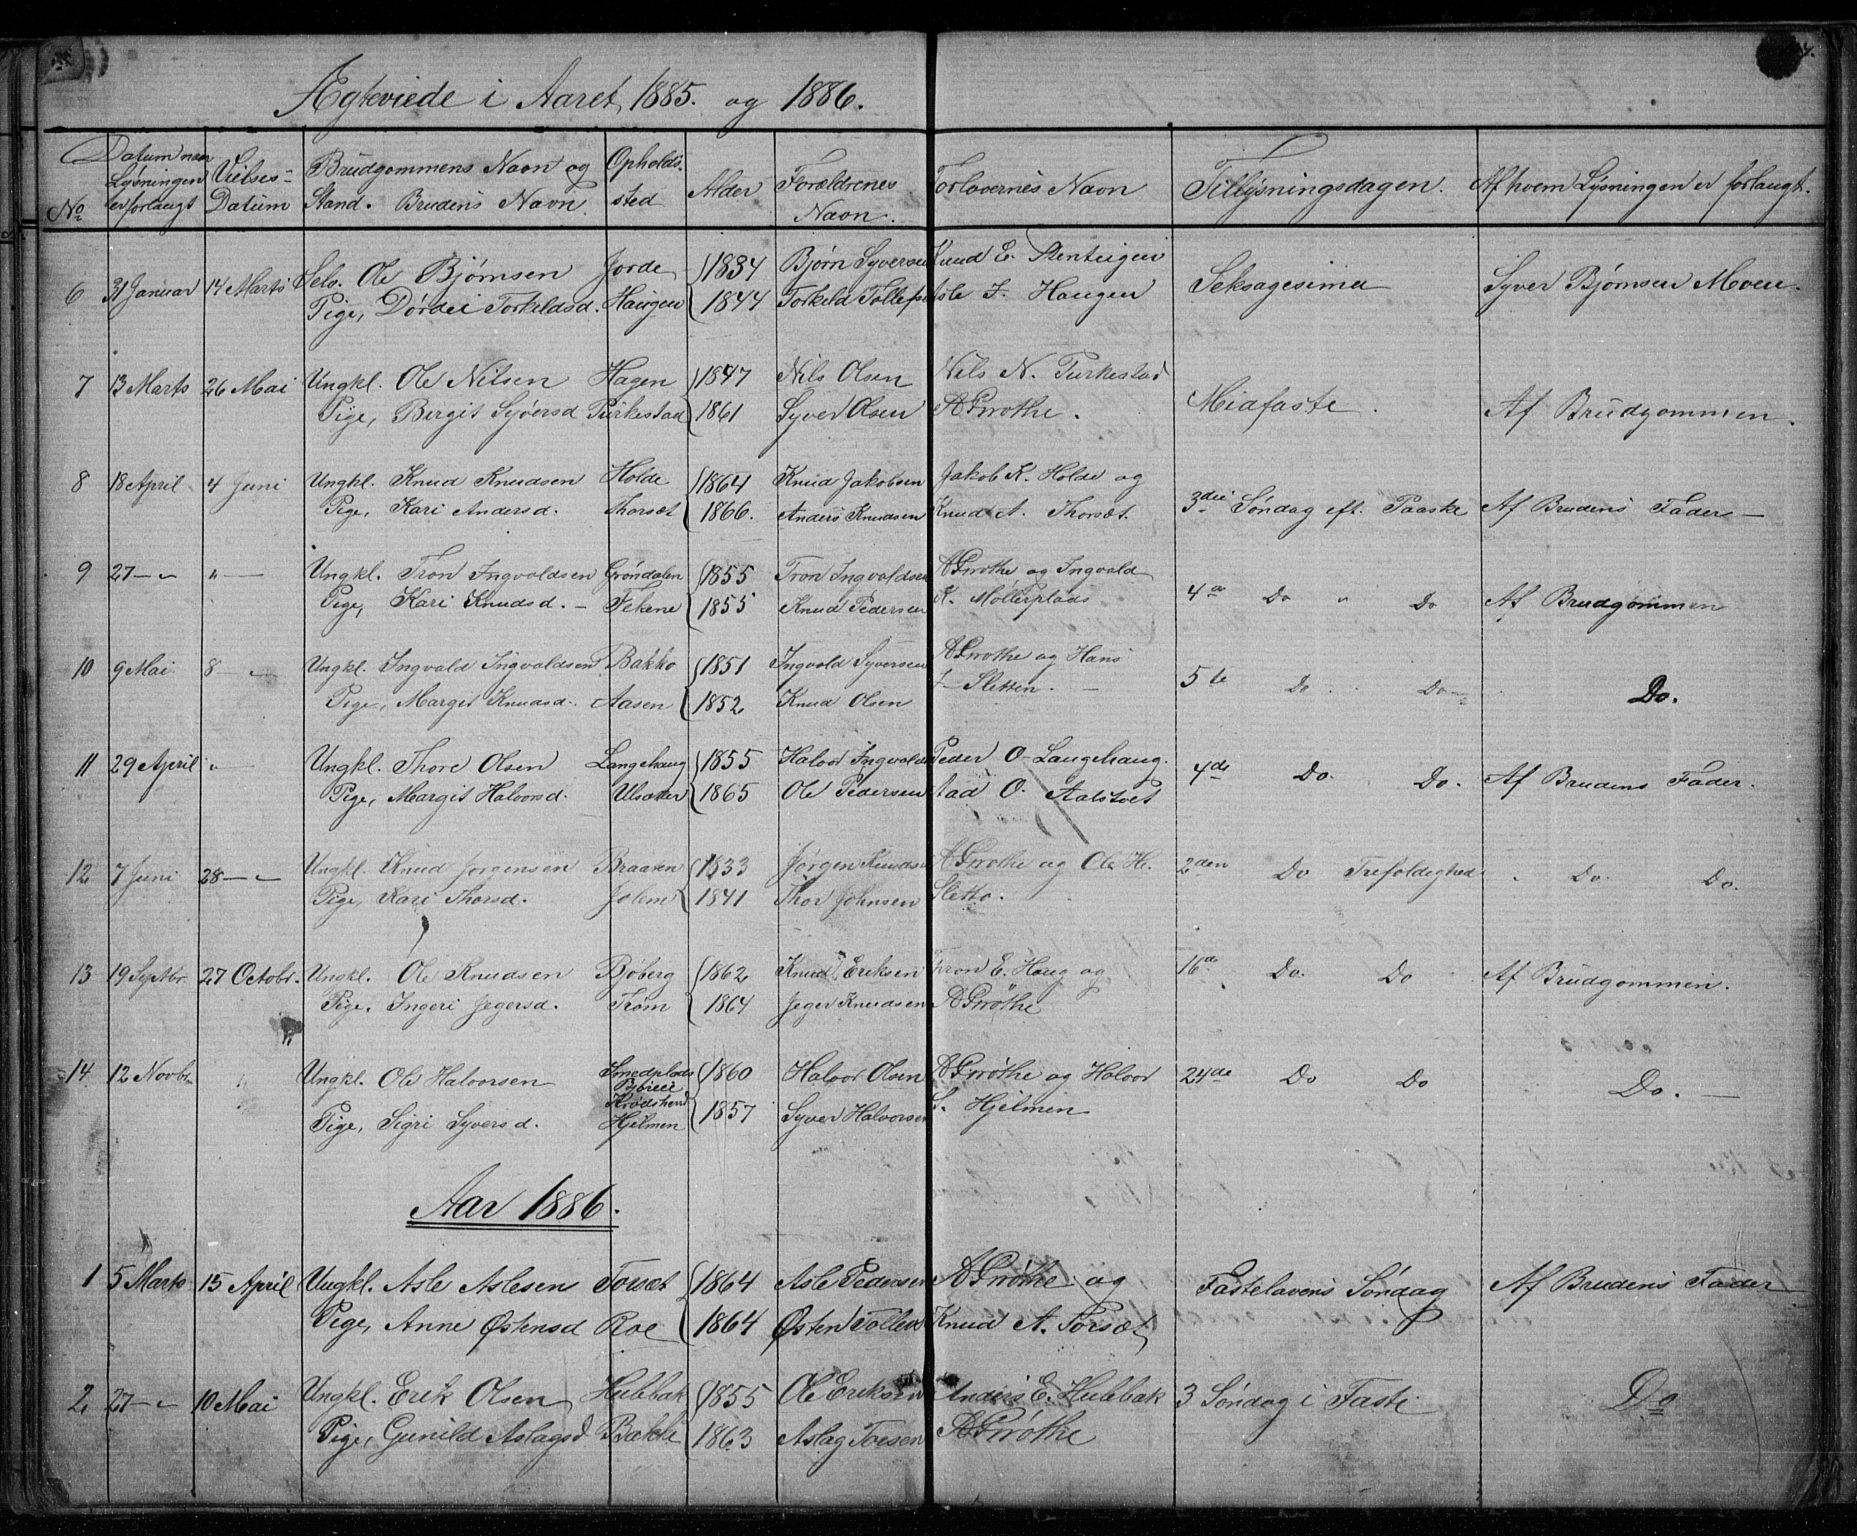 Ægteviede i Aaret 1885. og 1886.
No Datum naar Lysningen er forlangt Vielses- Datum Brudgommens Navn og Stand. Brudens Navn. Opholds- sted Alder Forældrenes Navn. Forlovernes Navn Tillysningsdagen. Af hvem Lysningen er forlangt.
6 31 Januar 14 Marts Selv. Ole Bjørnsen Jorde 1834 Bjørn Syversen Knud E. Stenteigen Seksagesima Syver Bjørnsen Moen.
Pige, Dørdei Torkildsd. Haugen 1844 Torkild Tollefs Asle T. Haugen
7 13 Marts 26 Mai Ungkl. Ole Nilsen Hagen 1847 Nils Olsen Nils N. Turkestad Midfaste. Af Brudgommen.
Pige, Bergit Syversd Turkestad 1861 Syver Olsen A Grøthe.
8 18 April 4 Juni Ungkl. Knud Knudsen Holde 1864 Knud Jakobsen Jakob K. Holde og 3die Søndag eft. Paaske Af Brudens Fader —
Pige, Kari Andersd. Thorsæt 1866. Anders Knudsen Knud A. Thorsæt.
9 27 — „ „ — Ungkl. Tron Ingvaldsen Grøndalen 1855 Tron Ingvaldsen A Grøthe og Ingvald 4de Do „ Do Af Brudgommen
Pige, Kari Knudsd. — Fekene 1855 Knud Pedersen K. Møllerplads
10 9 Mai 8 — „ Ungkl. Ingvald Ingvaldsen Bakko 1851 Ingvald Syversen A Grøthe og Hans 5te Do Do Do.
Pige, Margit Knudsd. Aasen 1852 Knud Olsen Sletten. —
11 29 April „ — Ungkl. Thore Olsen Langehaug 1855 Halvor Ingvalds Peder O. Langehaug. 4de Do. Do. Af Brudens Fader.
Pige, Margit Halvorsd. Ulsaker 1865 Ole Pedersen O. Aalstvet
12 7 Juni 28 — „ Ungkl. Knud Jørgensen Braaten 1833 Jørgen Knudsen A Grøthe og Ole H. 2den Do Trefoldighed „ Do. Do.
Pige, Kari Thorsd. Jolem 1841 Thor Johnsen Sletto.
13 19 Septbr 27 Octobr. Ungkl. Ole Knudsen Bjøberg 1862 Knud Eriksen Tron E. Haug og 16de Do. Do Af Brudgommen.
Pige, Ingeri Jegersd. Trøm 1864 Jeger Knudsen A Grøthe
14 12 Novbr Ungkl. Ole Halvorsen Smedplads 1860 Halvor Olsen A Grøthe og Halvor 24de Do Do Do. —
Krødsherd
Pige, Sigri Syversd. Hjelmen 1857 Syver Halvorsen S. Hjelmen
Aar 1886.
1 5 Marts 15 April Ungkl. Asle Aslesen Torsæt 1864 Asle Pedersen A Grøthe og Fastelavens Søndag Af Brudens Fader
Pige, Anne Østensd Roe 1864 Østen Tollevs Knud A. Torsæt
2 27 — „ 10 Mai Ungkl. Erik Olsen Hubbak 1855 Ole Eriksen Anders E. Hubbak 3 Søndag i Faste Do
Pige, Gunild Aslagsd Bakke 1863 Aslag Toesen A Grøthe